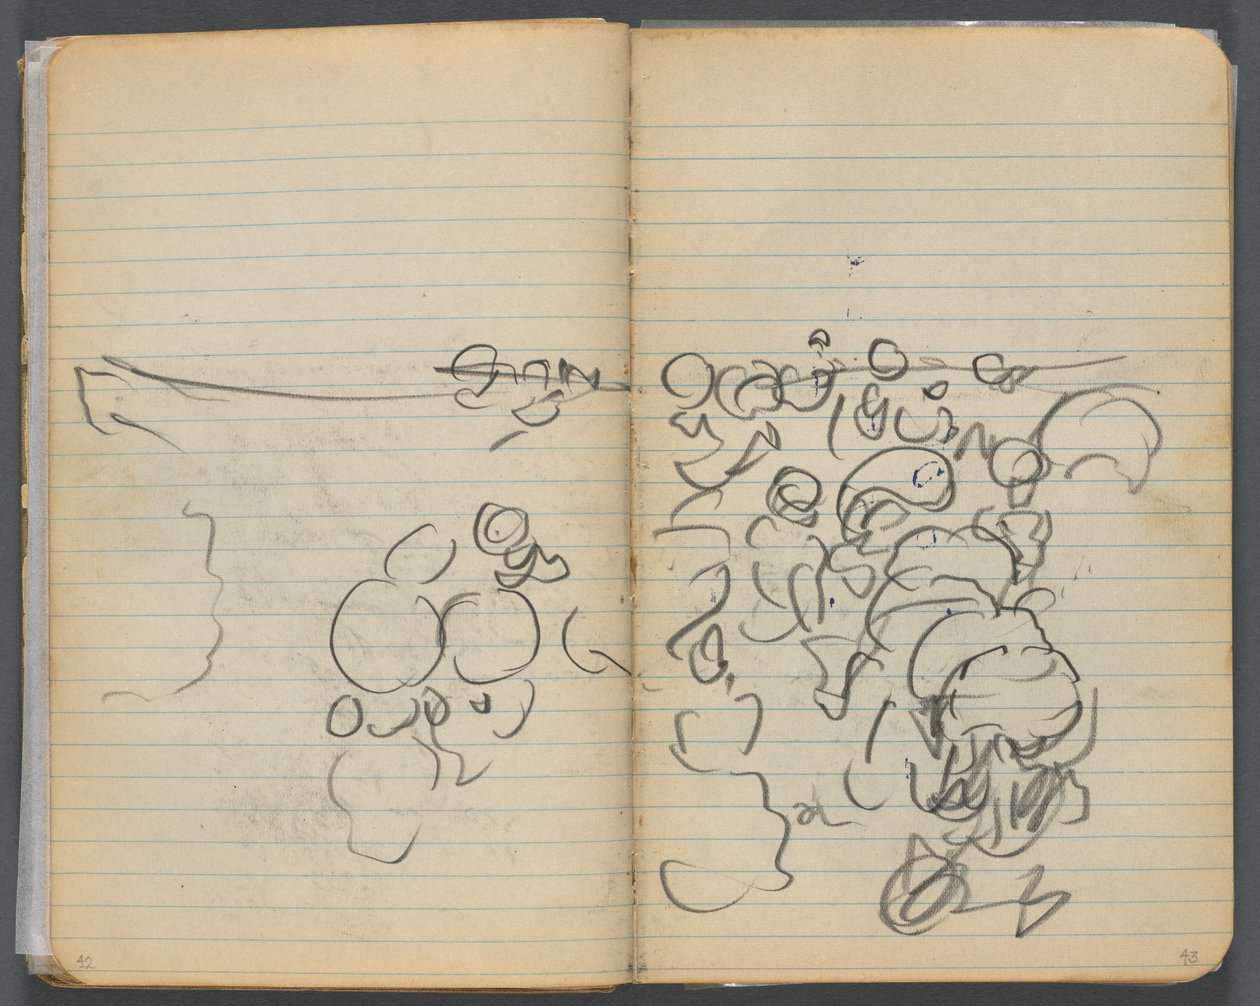 42
43